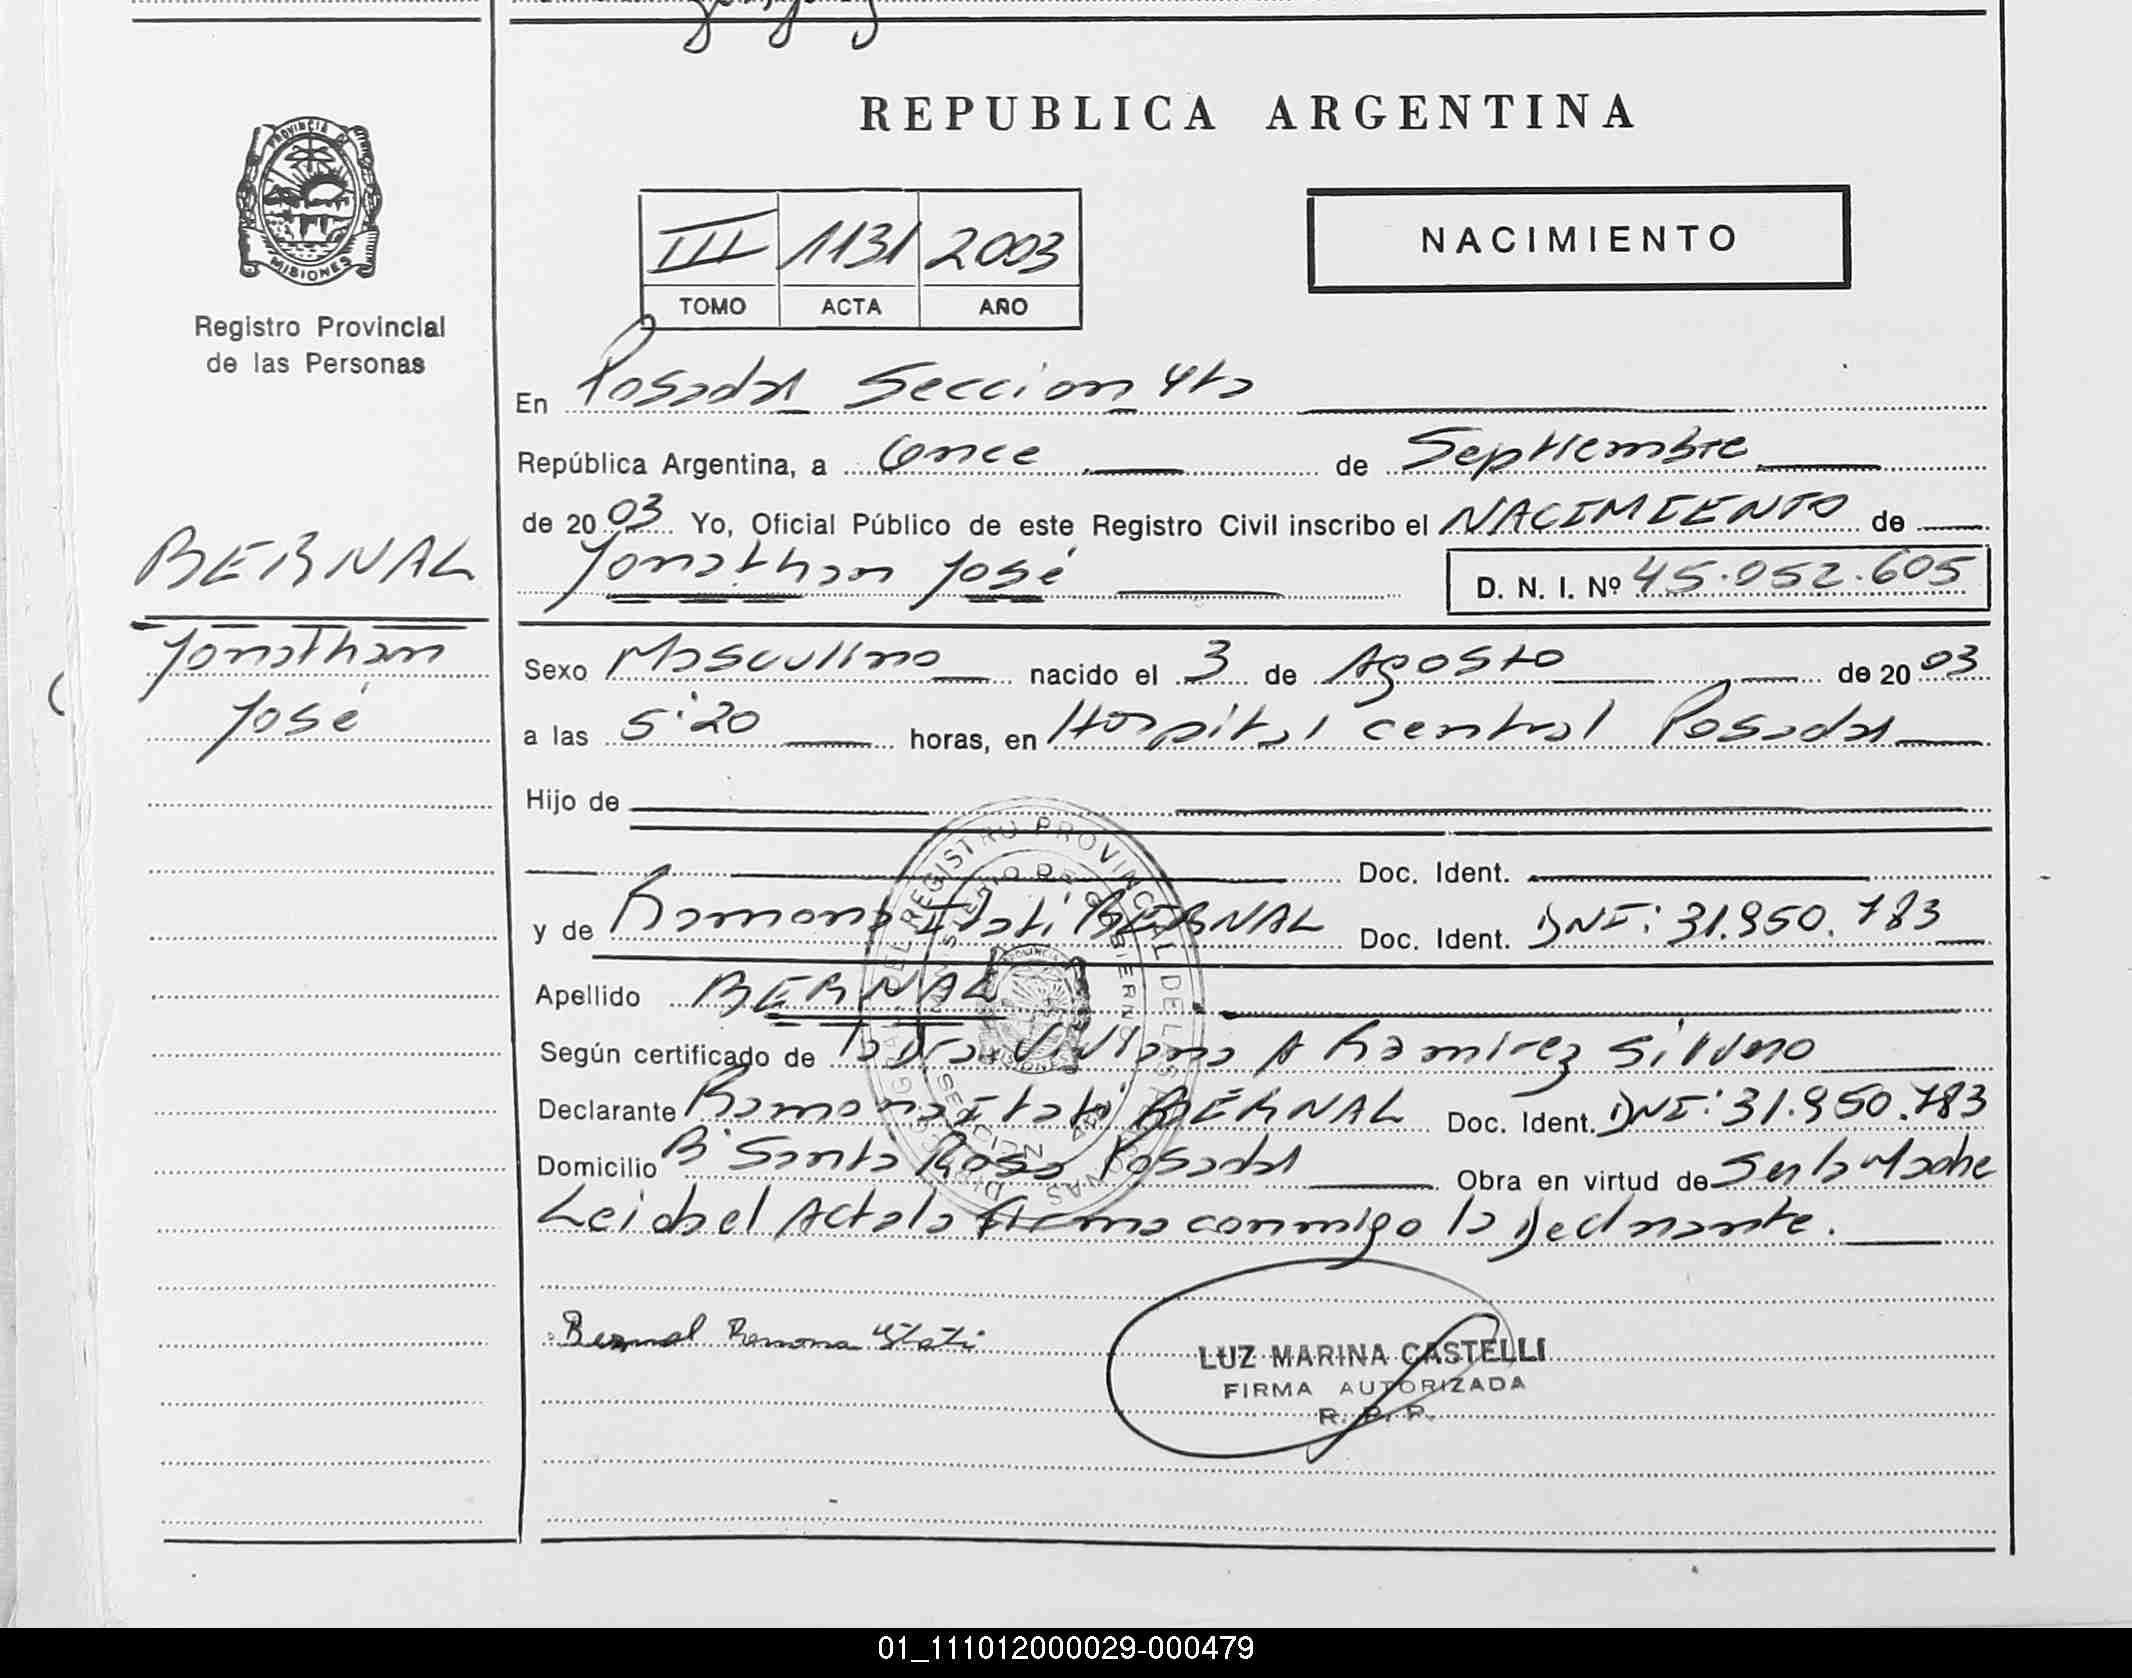 REPUBLICA ARGENTINA
PROVINCIA DE MISIONES
Registro Provincial
de las Personas
III 1131 2003
TOMO ACTA AÑO
NACIMIENTO
En Posadas Seccion 4ta
República Argentina, a Once de Septiembre
de 2003 Yo, Oficial Público de este Registro Civil inscribo el NACIMIENTO de
Jonathan José D. N. I. Nº 45.052.605
BERNAL
Jonathan
José
Sexo Masculino nacido el 3 de Agosto de 2003
a las 5'20 horas, en Hospital central Posadas
Hijo de
Doc. Ident.
y de Ramona Itati BERNAL Doc. Ident. DNI: 31.950.783
Apellido BERNAL
Según certificado de la Dra. Viviana A Ramirez
Declarante Ramona Itati BERNAL Doc. Ident. DNI: 31.950.783
Domicilio B° Santa Rosa Posadas Obra en virtud de Ser la Madre
Leida el Acta la firma conmigo la Declarante.
Bernal Ramona Itati
LUZ MARINA CASTELLI
FIRMA AUTORIZADA
R. P. P.
01_111012000029-000479